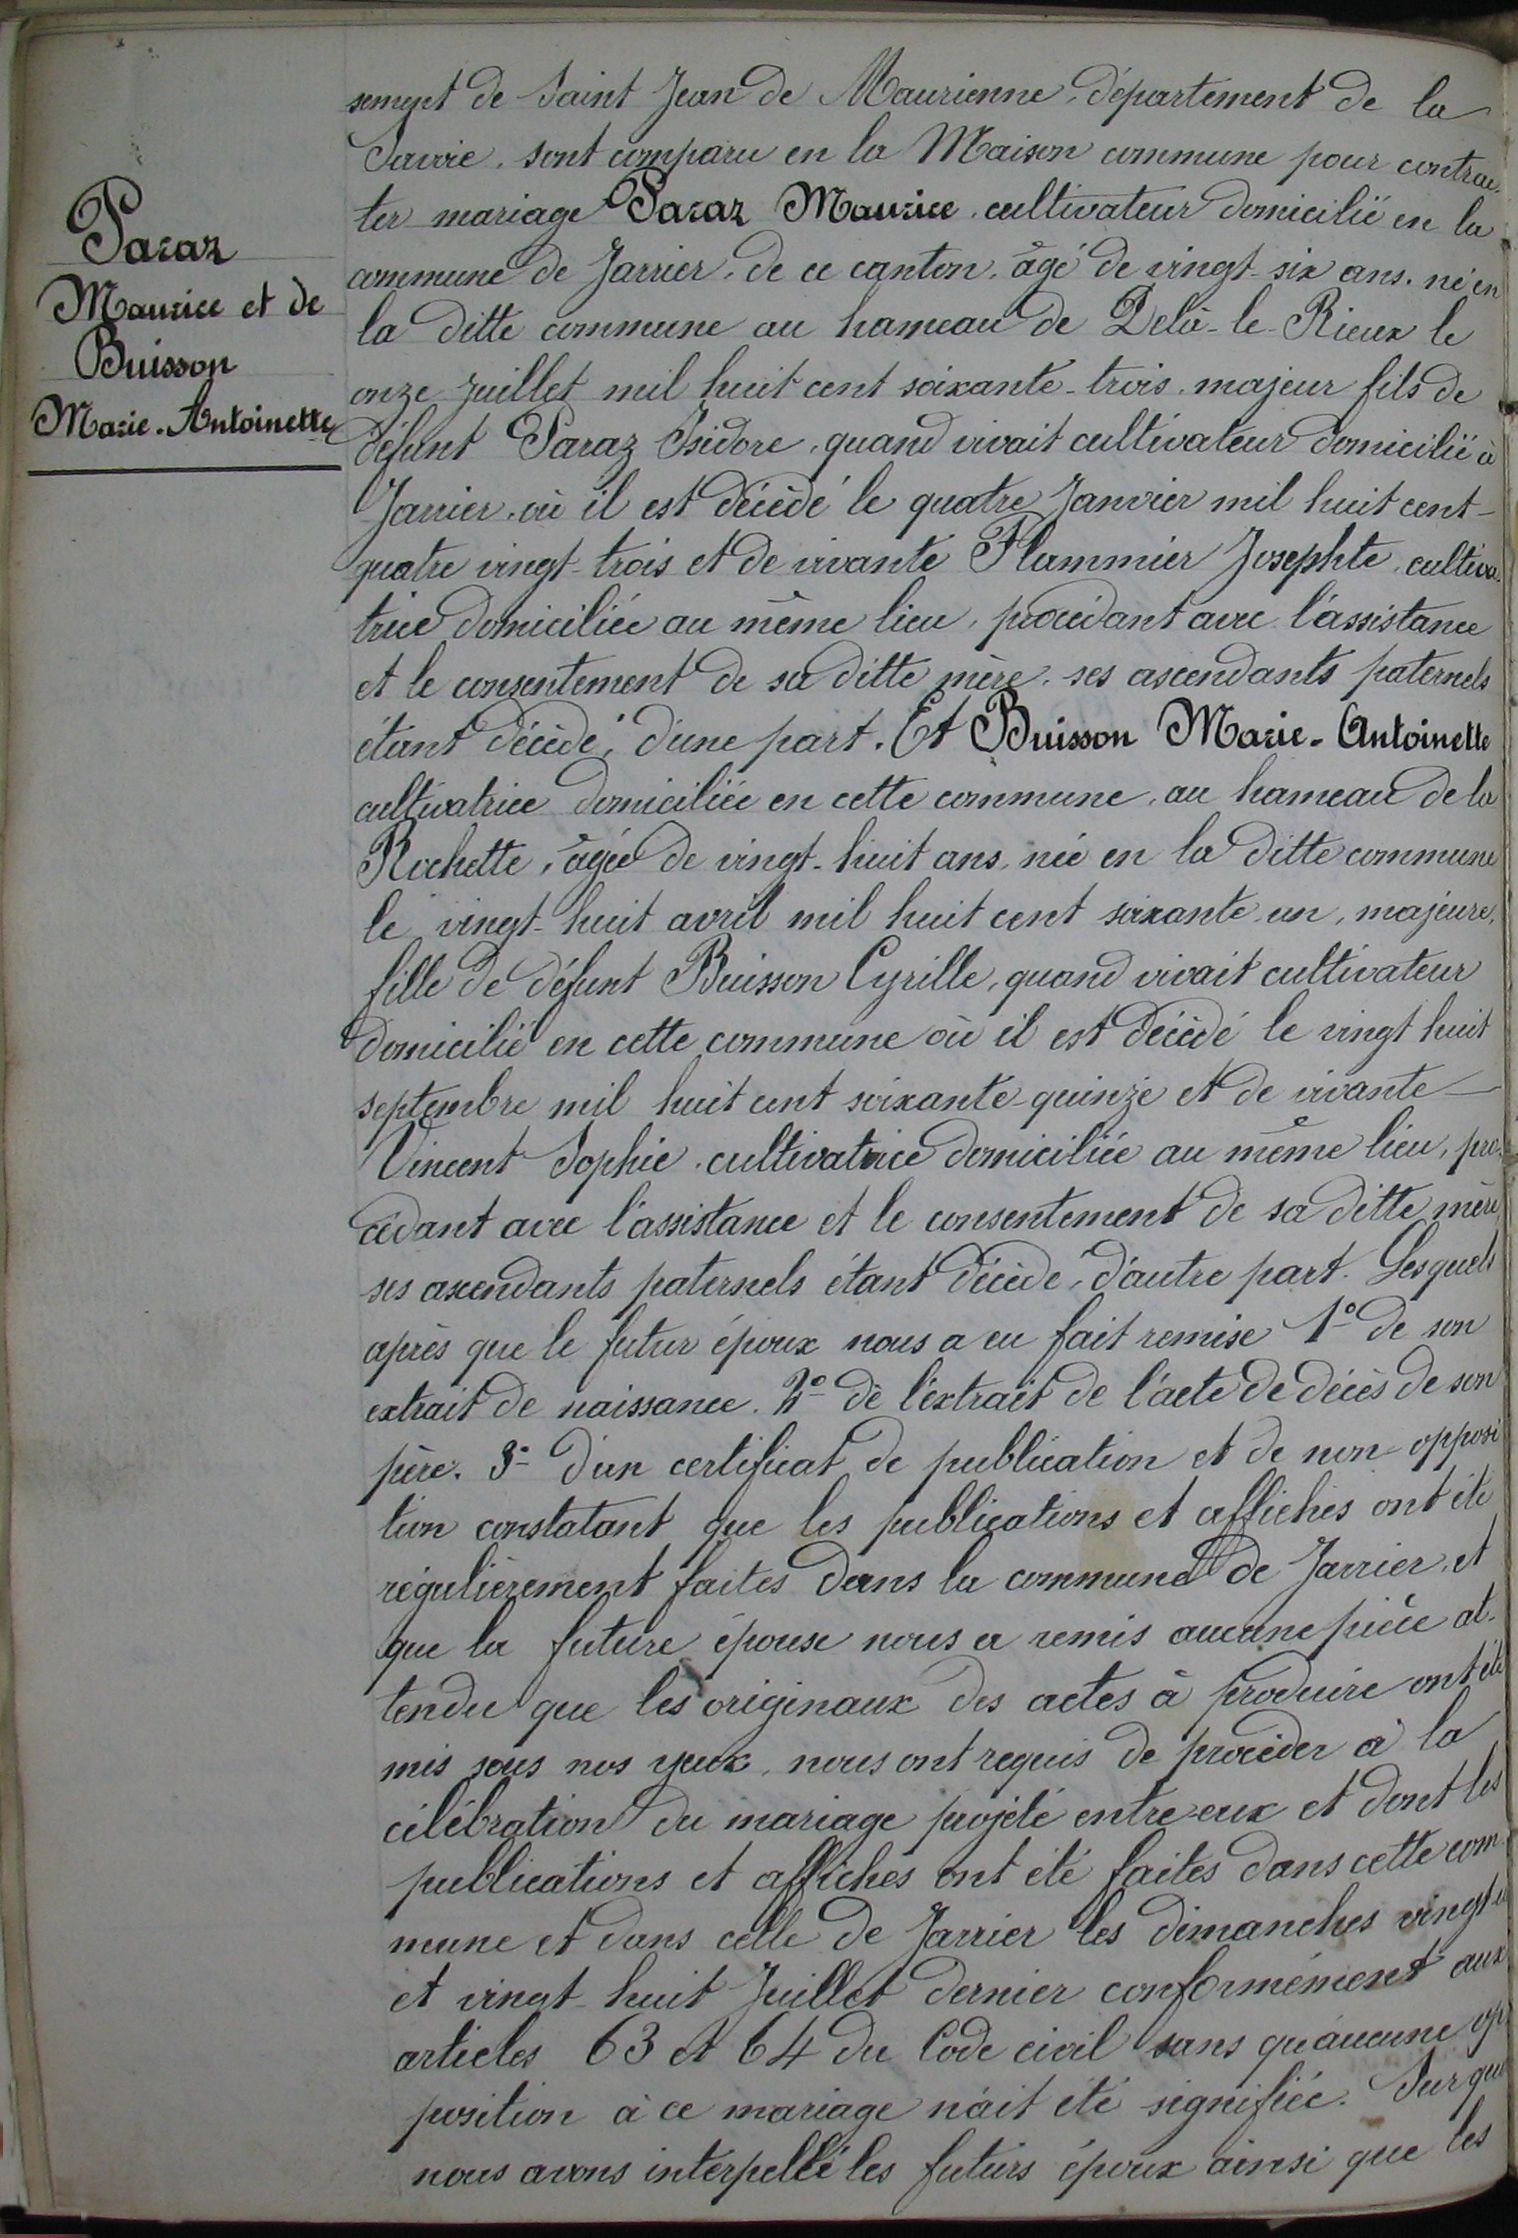 Paraz
Maurice et de
Buisson
Marie-Antoinette
sement de Saint Jean de Maurienne, département de la
Savoie, sont comparu en la Maison commune pour contrac-
ter mariage Paraz Maurice, cultivateur domicilié en la
commune de Jarrier, de ce canton, âgé de vingt-six ans, né en
la ditte commune au hameau de Delà-le-Rieux le
onze juillet mil huit cent soixante-trois, majeur fils de
défunt Paraz Isidore, quand vivait cultivateur domicilié à
Jarrier, où il est décèdé le quatre Janvier mil huit cent-
quatre vingt-trois et de vivante Flammier Josephte, cultiva-
trice domiciliée au même lieu, procédant avec l'assistance
et le consentement de sa ditte mère, ses ascendants paternels
étant décèdé, d'une part. Et Buisson Marie-Antoinette
cultivatrice domiciliée en cette commune, au hameau de la
Rochette, âgée de vingt-huit ans, née en la ditte commune
le vingt-huit avril mil huit cent soixante-un, majeure,
fille de défunt Buisson Cyrille, quand vivait cultivateur
domicilié en cette commune où il est décèdé le vingt huit
septembre mil huit cent soixante-quinze et de vivante-
Vincent Sophie, cultivatrice domiciliée au même lieu, pro-
cédant avec l'assistance et le consentement de sa ditte mère,
ses ascendants paternels étant décèdé, d'autre part. Lesquels
après que le futur époux nous a eu fait remise 1° de son
extrait de naissance. 2° de l'extrait de l'acte de décès de son
père. 3° d'un certificat de publication et de non opposi
tion constatant que les publications et affiches ont été
régulièrement faites dans la commune de Jarrier, et
que la future épouse nous a remis aucune pièce at-
tendu que les originaux des actes à produire ont été
mis sous nos yeux, nous ont requis de procèder à la
célébration du mariage projeté entre eux et dont les
publications et affiches ont été faites dans cette com-
mune et dans celle de Jarrier les dimanches vingt
et vingt-huit Juillet dernier conformément aux
articles 63 et 64 du Code civil sans qu'aucune op
position à ce mariage n'ait été signifiée. Sur quoi
nous avons interpellé les futurs époux ainsi que les